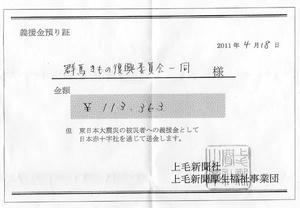 義援金預り証
2011年4月18日
群馬きもの復興委員会一同 様
金額
¥ 113,363
但 東日本大震災の被災者への義援金として
日本赤十字社を通じて送金します。
上毛新聞社
上毛新聞厚生福祉事業団